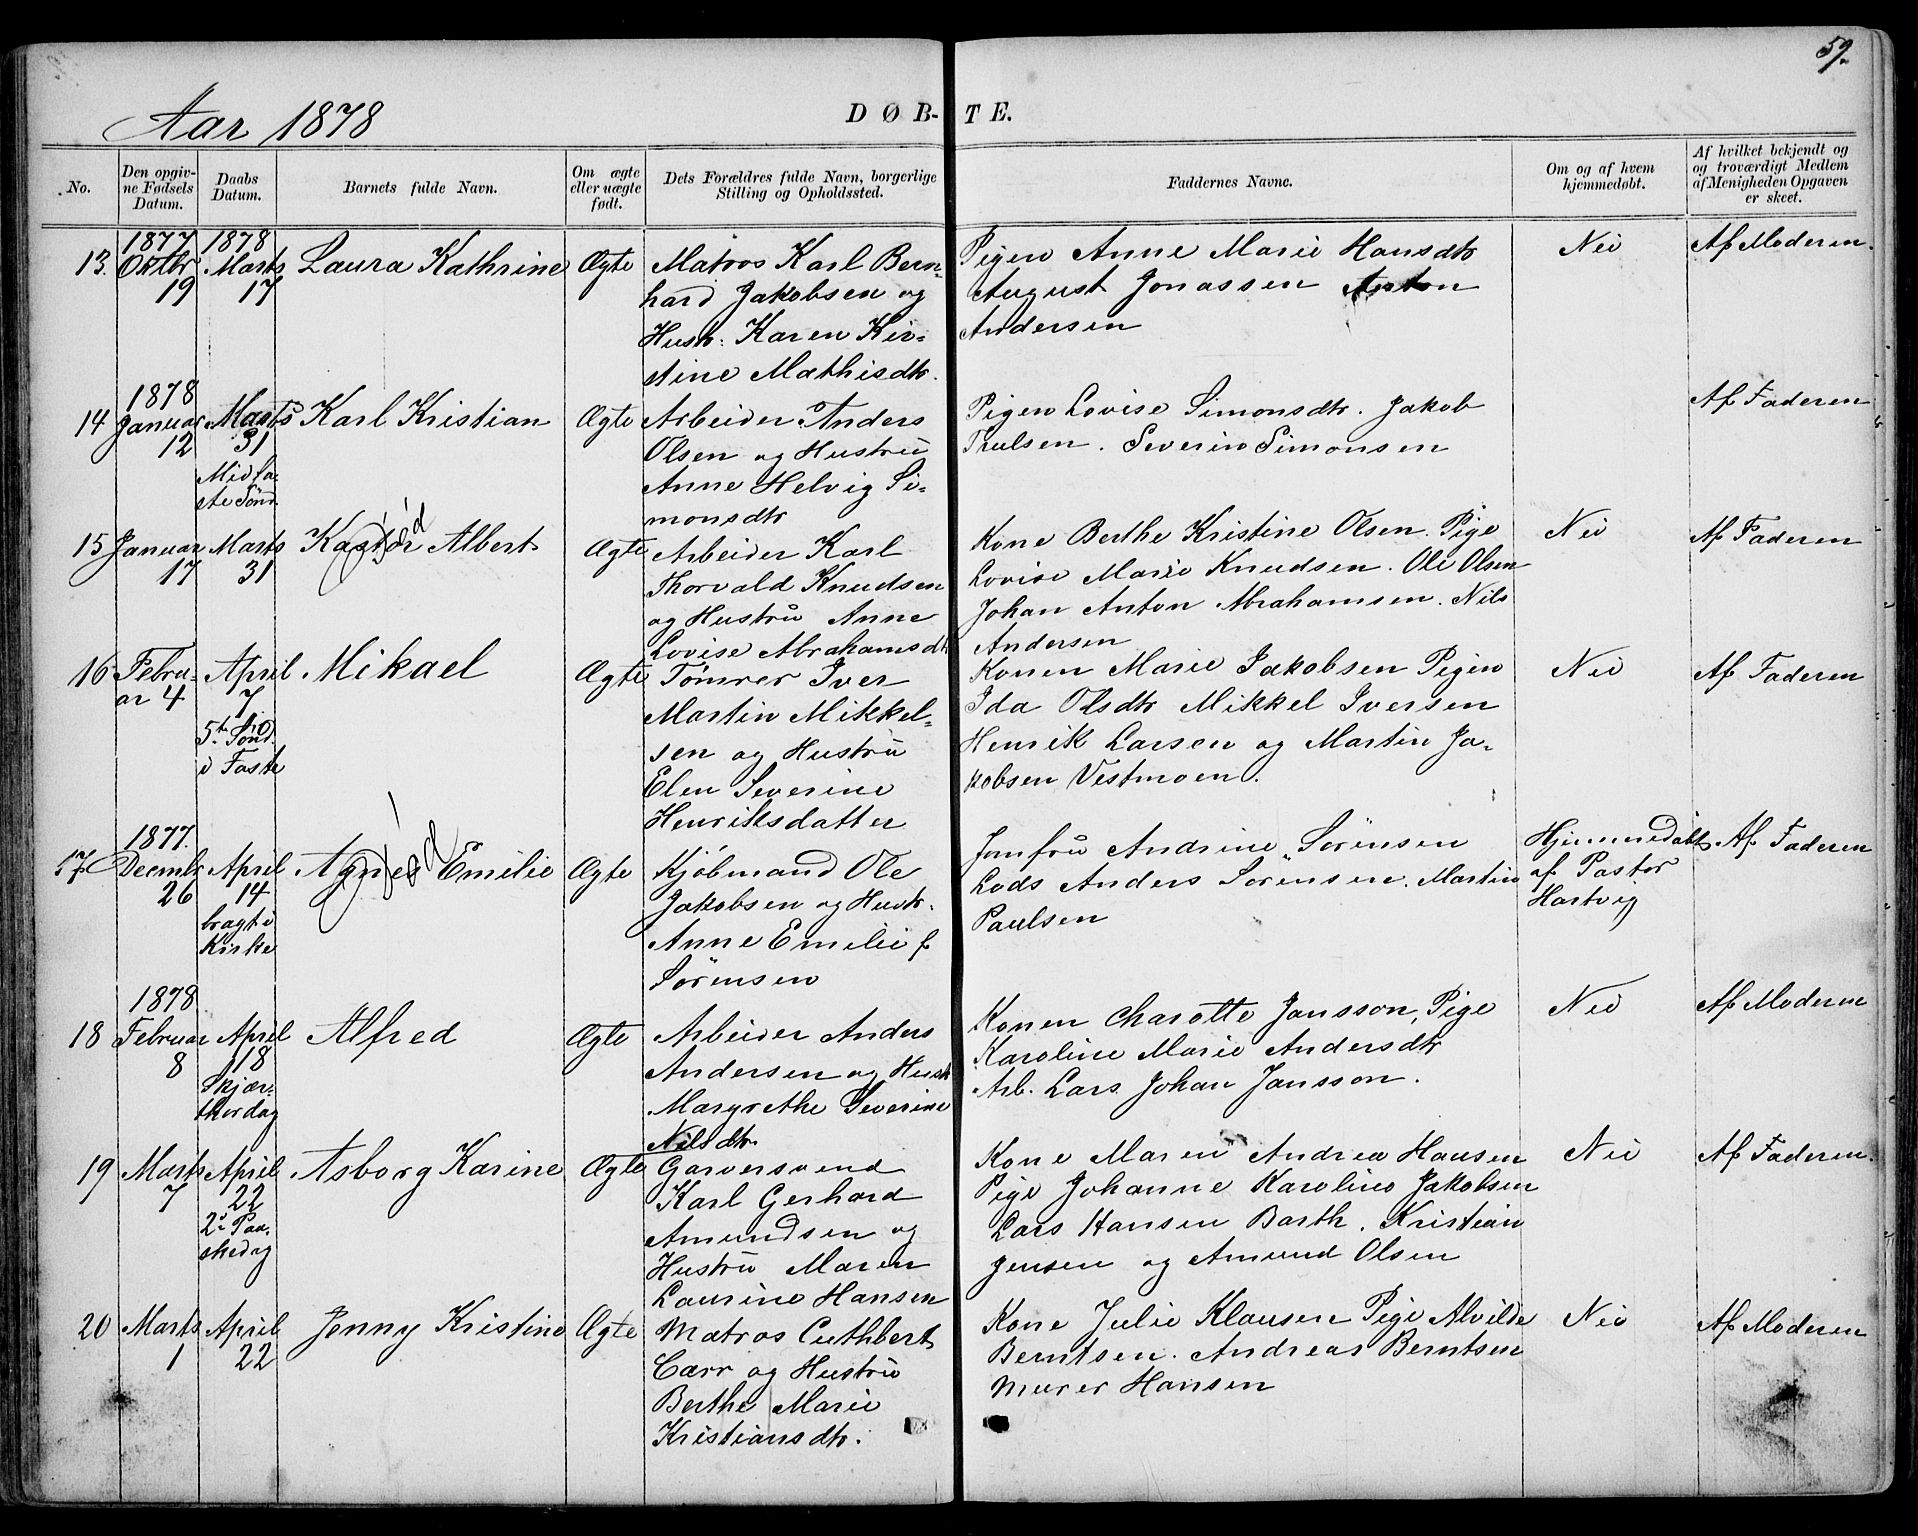 59.
Aar 1878
DØB-TE.
No.
Den opgiv-
ne Fødsels
Datum.
Daabs
Datum.
Barnets fulde Navn.
Om ægte
eller uægte
født.
Dets Forældres fulde Navn, borgerlige
Stilling og Opholdssted.
Faddernes Navne.
Om og af hvem
hjemmedøbt.
Af hvilket bekjendt og
og troværdigt Medlem
af Menigheden Opgaven
er skeet.
13.
1877
Oktbr
19
1878
Marts
17
Laura Kathrine
Ægte
Matros Karl Bern-
hard Jakobsen og
Hustr. Karen Kir-
stine Mathisdtr.
Pigen Anne Marie Hansdtr
August Jonassen Anton
Andersen
Nei
Af Moderen.
14
1878
Januar
12
Marts
31
Midfa-
steSønd.
Karl Kristian
Ægte
Arbeider Anders
Olsen og Hustru
Anne Helvig Si-
monsdtr
Pigen Lovise Simonsdtr. Jakob
Trulsen. Severin Simonsen
Af Faderen
15
Januar
17
Marts
31
Kastor Albert
død
Ægte
Arbeider Karl
Thorvald Knudsen
og Hustru Anne
Lovise Abrahamsdtr
Kone Berthe Kristine Olsen. Pige
Lovise Marie Knudsen. Ole Olsen
Johan Anton Abrahamsen. Nils
Andersen
Nei
Af Faderen
16
Febru-
ar 4
April
7
5te Sønd.
i Faste
Mikael
Ægte
Tømrer Iver
Martin Mikkel-
sen og Hustru
Elen Severine
Henriksdatter
Konen Marie Jakobsen Pigen
Ida Olsdtr Mikkel Iversen
Henrik Larsen og Martin Ja-
kobsen Vestmoen.
Nei
Af Faderen
17
1877.
Decmbr
26
April
14
bragt i
Kirke
Agnes Emilie
død
Ægte
Kjøbmand Ole
Jakobsen og Hustr.
Anne Emilie f
Sørensen
Jomfru Andrine Sørensen
Lods Anders Sørensen. Martin
Paulsen
Hjemmedøbt
af Pastor
Hartvig
Af Faderen
18
1878
Februar
8
April
18
Skjær-
thorsdag
Alfred
Ægte
Arbeider Anders
Andersen og Hustr
Margrethe Severine
Nilsdtr.
Konen Charotte Jansson, Pige
Karoline Marie Andersdtr
Arb. Lars Johan Jansson.
Nei
Af Moderen
19
Marts
7
April
22
2n Paa-
skedag
Asborg Karine
Ægte
Garversvend
Karl Gerhard
Amundsen og
Hustru Maren
Laurine Hansen
Kone Maren Andrea Hansen
Pige Johanne Karoline Jakobsen
Lars Hansen Barth. Kristian
Jensen og Amund Olsen
Nei
Af Faderen.
20
Marts
1
April
22
Jenny Kristine
Ægte
Matros Cuthbert
Carr og Hustru
Berthe Marie
Kristiansdtr.
Kone Julie Klausen Pige Alvilde
Berntsen. Andreas Berntsen
Murer Hansen
Nei
Af Moderen